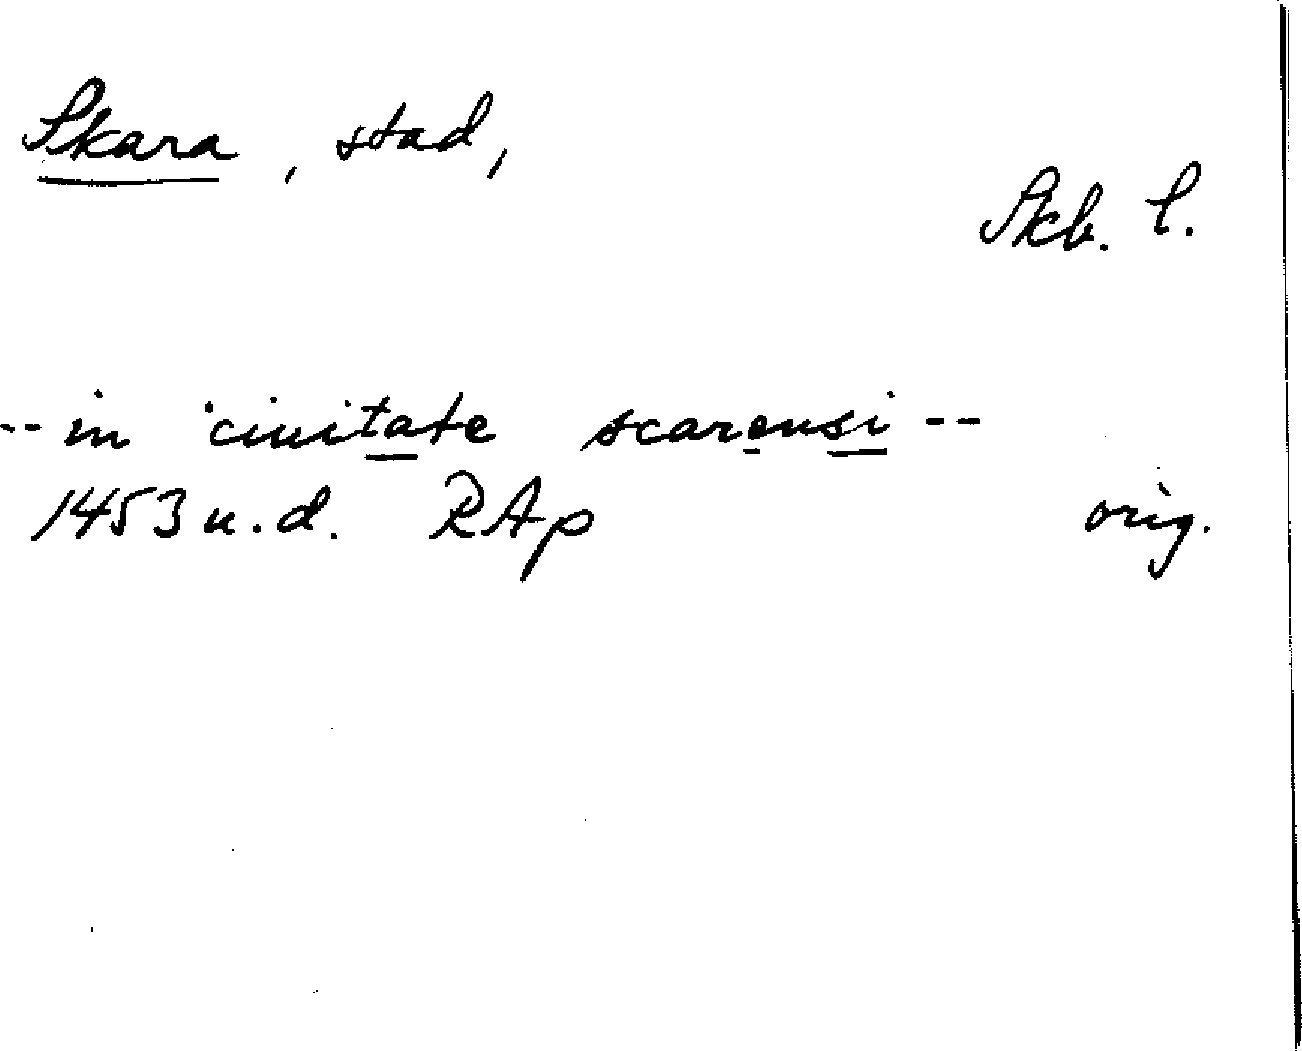 Skara, stad,
Skb. l.
-- in ciuitate scarensi --
1453 u.d. RAp orig.